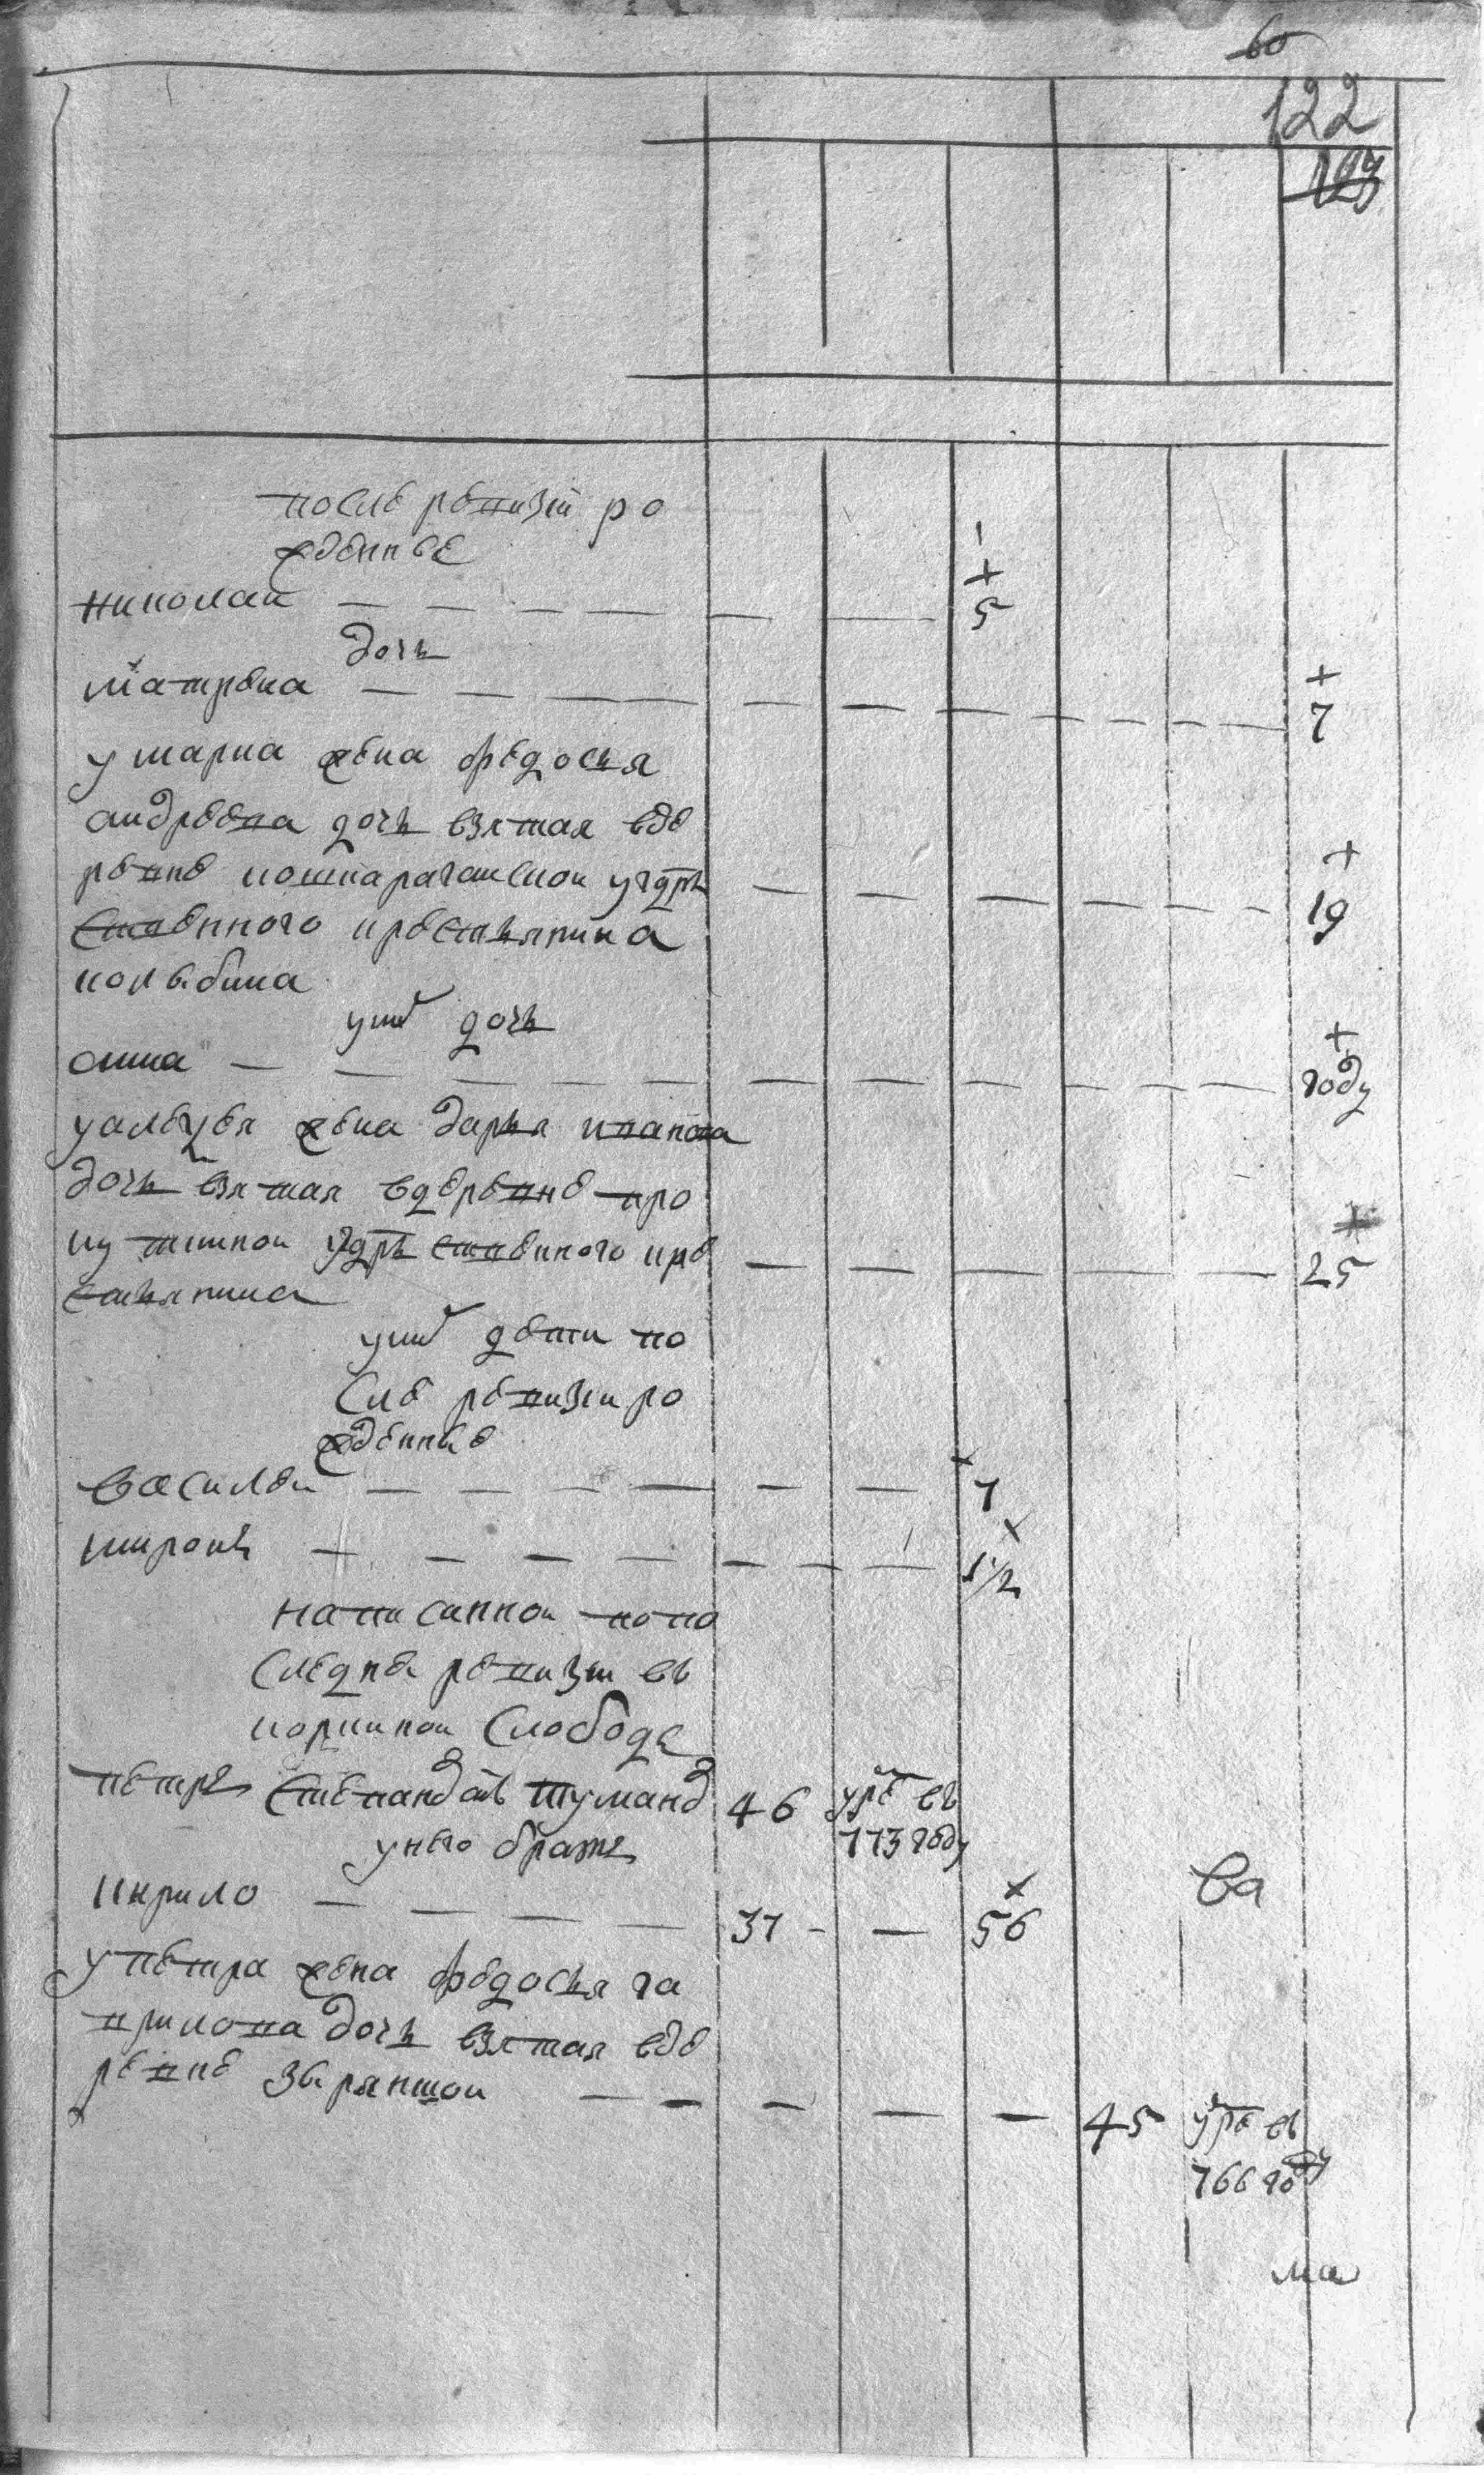 60
122
123
после ревизии ро
жденные
николай — — — — — — 5
дочь
матрена — — — — — — 7
у марка жена федосья
андреева дочь взятая вде
ревне кошкарагаиской у гдрь
ственного крестьянина — — — — 19
колыбина
у ней дочь
анна — — — — — — году
у алексея жена дарья иванова
дочь взятая вдеревне про
куткиной у гдрь ственного кре — — — — 25
стьянина
у ней дети по
сле ревизии ро
жденные
василей — — — — — — 7
миронъ — — — — — — 1/2
написанной по по
следней ревизии въ
коркиной слободе
петръ степановъ туманов 46 умре въ
773 году
у него братъ
кирило — — — — 37 — — 56
ва
у петра жена федосья га
врилова дочь взятая вде
ревне зырянской — — — — — 45 умре въ
766 году
ма